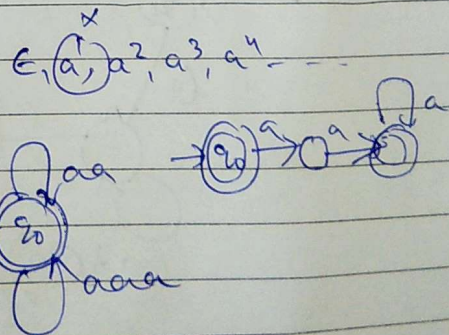 x
ϵ, a, a², a³, a⁴ - - - -
a
aa q₀ a a
q₀
aaa